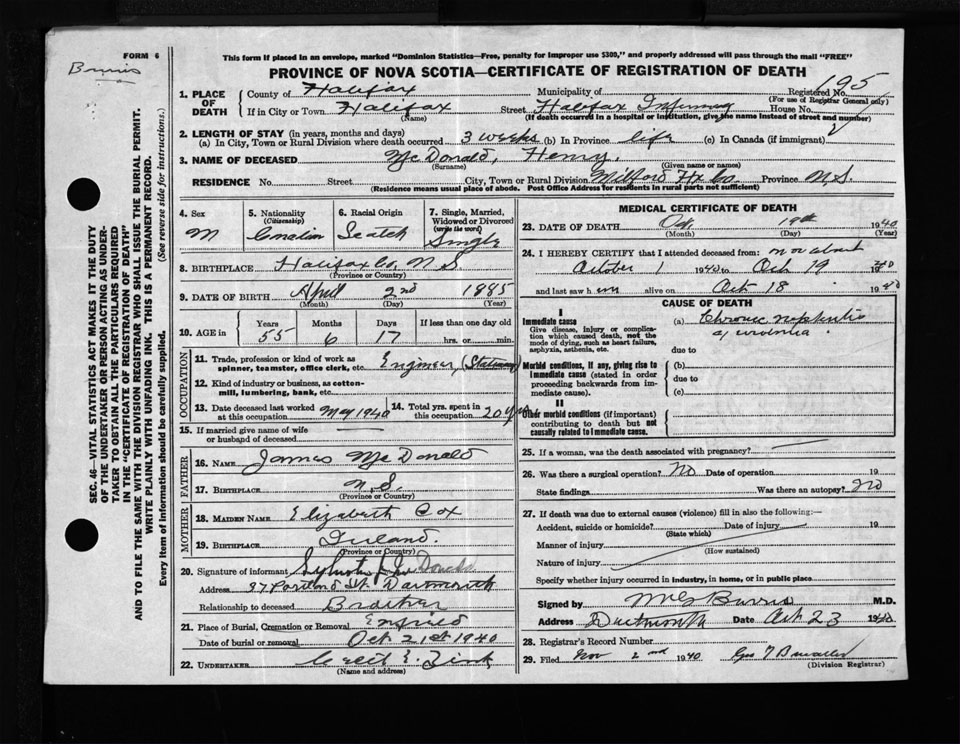 FORM 6
Burris
This form if placed in an envelope, marked "Dominion Statistics—Free, penalty for improper use $300," and properly addressed will pass through the mail "FREE"
PROVINCE OF NOVA SCOTIA—CERTIFICATE OF REGISTRATION OF DEATH
SEC. 46—VITAL STATISTICS ACT MAKES IT THE DUTY
OF THE UNDERTAKER OR PERSON ACTING AS UNDER-
TAKER TO OBTAIN ALL THE PARTICULARS REQUIRED
IN THE "CERTIFICATE OF REGISTRATION OF DEATH"
AND TO FILE THE SAME WITH THE DIVISION REGISTRAR WHO SHALL ISSUE THE BURIAL PERMIT.
WRITE PLAINLY WITH UNFADING INK. THIS IS A PERMANENT RECORD.
Every item of information should be carefully supplied. (See reverse side for instructions.)
1. PLACE OF DEATH County of Halifax Municipality of Registered No. 195
(For use of Registrar General only)
If in City or Town Halifax Street Halifax Infirmary House No.
(Name) (If death occurred in a hospital or institution, give the name instead of street and number)
2. LENGTH OF STAY (in years, months and days)
(a) In City, Town or Rural Division where death occurred 3 weeks (b) In Province life (c) In Canada (if immigrant)
3. NAME OF DECEASED McDonald, Henry.
(Surname) (Given name or names)
RESIDENCE No. Street City, Town or Rural Division Milford Hx Co. Province N.S.
(Residence means usual place of abode. Post Office Address for residents in rural parts not sufficient)
4. Sex M
5. Nationality (Citizenship) Canadian
6. Racial Origin Scotch
7. Single, Married, Widowed or Divorced (write the word) Single
8. BIRTHPLACE Halifax Co, N S
(Province or Country)
9. DATE OF BIRTH April 2nd 1885
(Month) (Day) (Year)
10. AGE in Years 55 Months 6 Days 17 If less than one day old hrs. or min.
OCCUPATION
11. Trade, profession or kind of work as spinner, teamster, office clerk, etc. Engineer, (Stationary)
12. Kind of industry or business, as cotton-mill, lumbering, bank, etc.
13. Date deceased last worked at this occupation May 1940
14. Total yrs. spent in this occupation 20 yrs
15. If married give name of wife or husband of deceased
FATHER
16. NAME James McDonald
17. BIRTHPLACE N.S.
(Province or Country)
MOTHER
18. MAIDEN NAME Elizabeth Cox
19. BIRTHPLACE Ireland.
(Province or Country)
20. Signature of informant Sylvester McDonald
Address 97 Portland St. Dartmouth
Relationship to deceased Brother
21. Place of Burial, Cremation or Removal Enfield
Date of burial or removal Oct 21st 1940
22. UNDERTAKER E. Zink
(Name and address)
MEDICAL CERTIFICATE OF DEATH
23. DATE OF DEATH Oct. 19th 1940
(Month) (Day) (Year)
24. I HEREBY CERTIFY that I attended deceased from: on or about
October 1 1940 to Oct 19 1940
and last saw him alive on Oct 18 1940
CAUSE OF DEATH
I
Immediate cause (a) Chronic nephritis
Give disease, injury or complication which caused death, not the mode of dying, such as heart failure, asphyxia, asthenia, etc.
uraemia
due to
Morbid conditions, if any, giving rise to immediate cause (stated in order proceeding backwards from immediate cause). (b)
due to
(c)
II
Other morbid conditions (if important) contributing to death but not causally related to immediate cause.
25. If a woman, was the death associated with pregnancy?
26. Was there a surgical operation? No Date of operation 19
State findings Was there an autopsy? No
27. If death was due to external causes (violence) fill in also the following:—
Accident, suicide or homicide? Date of injury 19
(State which)
Manner of injury
(How sustained)
Nature of injury
Specify whether injury occurred in industry, in home, or in public place
Signed by M G Burris M.D.
Address Dartmouth Date Oct 23 1940
28. Registrar's Record Number
29. Filed Nov 2nd 1940
(Division Registrar)